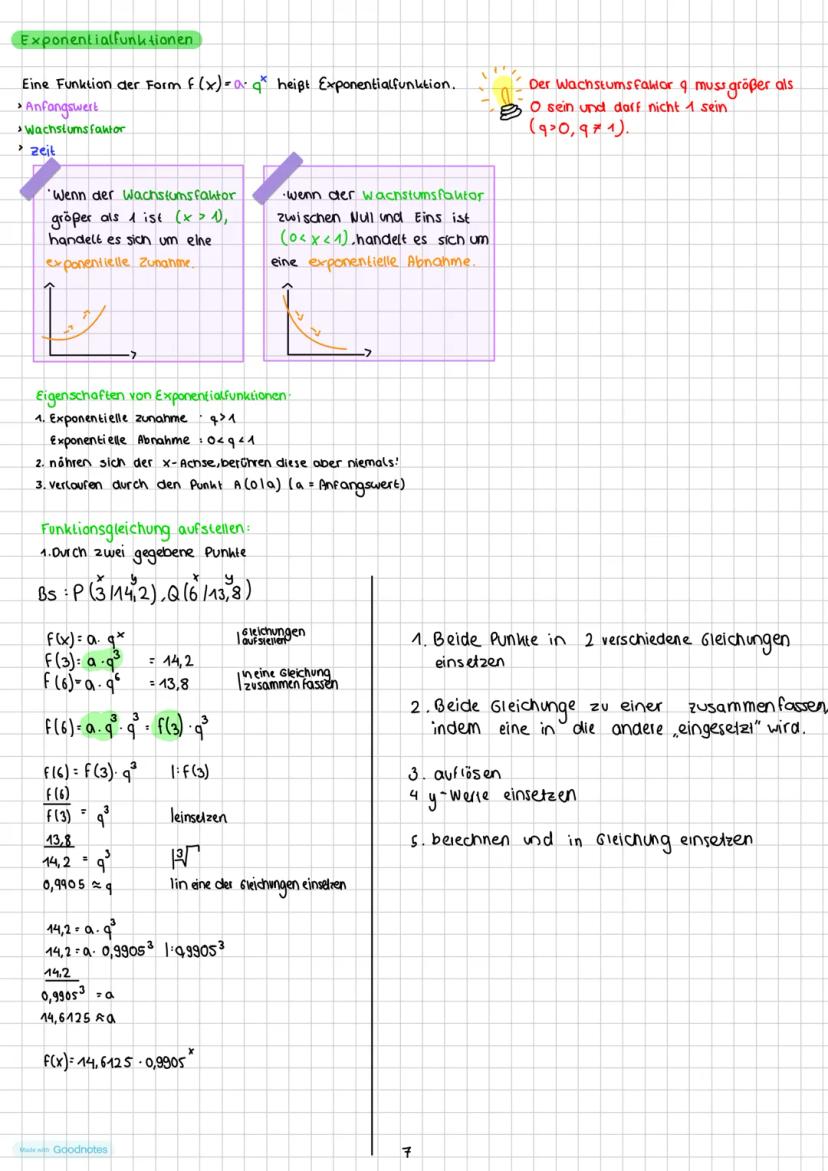 Exponentialfunktionen
Eine Funktion der Form f(x)=a·qˣ heißt Exponentialfunktion.
› Anfangswert
› Wachstumsfaktor
› Zeit
Der Wachstumsfaktor q muss größer als
0 sein und darf nicht 1 sein
(q>0, q≠1).
·Wenn der Wachstumsfaktor
größer als 1 ist (x>1),
handelt es sich um eine
exponentielle Zunahme.
·wenn der Wachstumsfaktor
zwischen Null und Eins ist
(0<x<1), handelt es sich um
eine exponentielle Abnahme.
Eigenschaften von Exponentialfunktionen:
1. Exponentielle Zunahme : q>1
Exponentielle Abnahme : 0<q<1
2. nähren sich der x-Achse, berühren diese aber niemals!
3. verlaufen durch den Punkt A(0|a) (a = Anfangswert)
Funktionsgleichung aufstellen:
1. Durch zwei gegebene Punkte
x y x y
Bs : P(3/14,2), Q(6/13,8)
f(x)= a· qˣ |Gleichungen aufstellen
f(3)= a·q³ = 14,2
f(6)= a·q⁶ = 13,8 |in eine Gleichung zusammenfassen
f(6)= a·q³·q³ = f(3)·q³
f(6)= f(3)·q³ |:f(3)
f(6)
f(3) = q³ |einsetzen
13,8
14,2 = q³ |³√
0,9905 ≈ q |in eine der Gleichungen einsetzen
14,2 = a·q³
14,2 = a· 0,9905³ |:0,9905³
14,2
0,9905³ = a
14,6125 ≈ a
f(x)= 14,6125 · 0,9905ˣ
1. Beide Punkte in 2 verschiedene Gleichungen
einsetzen
2. Beide Gleichunge zu einer zusammenfassen
indem eine in die andere „eingesetzt" wird.
3. auflösen
4 y-Werte einsetzen
5. berechnen und in Gleichung einsetzen
Made with Goodnotes
7